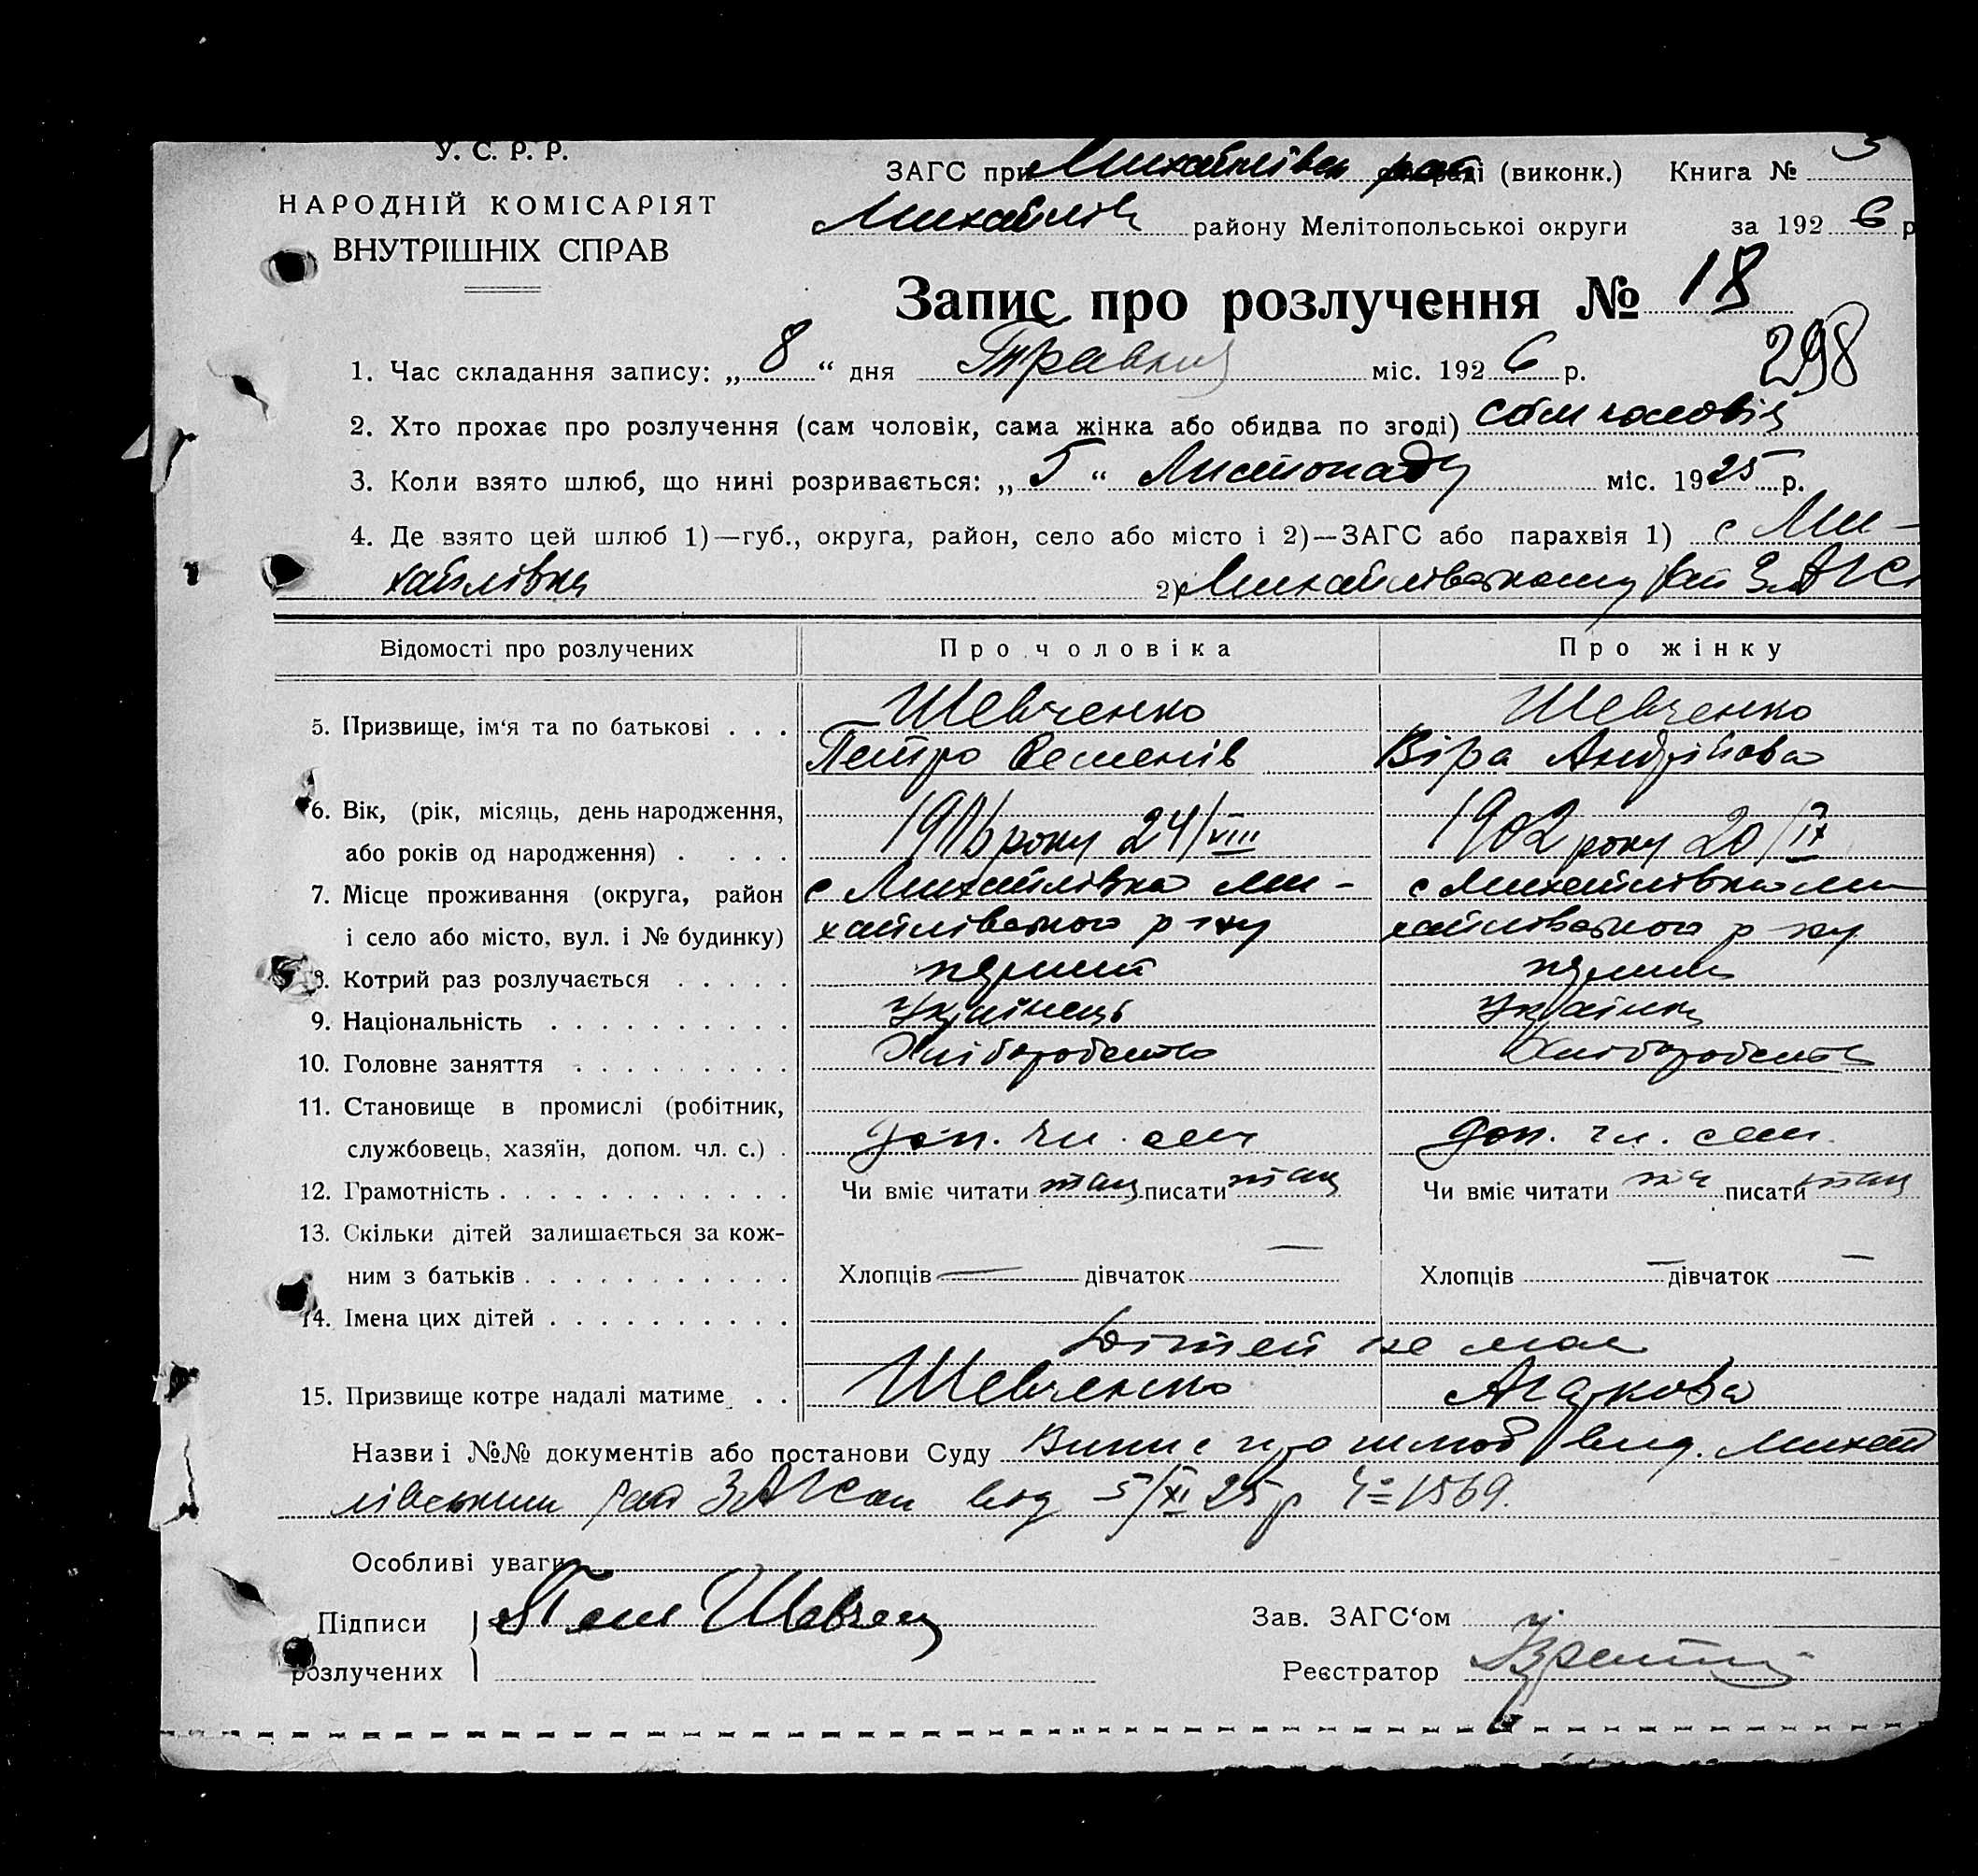 У. С. Р. Р.
НАРОДНІЙ КОМІСАРІЯТ
ВНУТРІШНІХ СПРАВ
ЗАГС при Михайлівск раді (виконк.) Книга № 3
Михайлів району Мелітопольської округи за 1926 р
Запис про розлучення № 18
298
1. Час складання запису: „8“ дня Травня міс. 1926 р.
2. Хто прохає про розлучення (сам чоловік, сама жінка або обидва по згоді) сам чоловік
3. Коли взято шлюб, що нині розривається: „5“ Листопаду міс. 1925 р.
4. Де взято цей шлюб 1)—губ., округа, район, село або місто і 2)—ЗАГС або парахвія 1) с Ми-
хайлівка 2) Михайлівському рай ЗАГСі
Відомості про розлучених Про чоловіка Про жінку
5. Призвище, ім‘я та по батькові . . . Шевченко Шевченко
Петро Семенів Віра Андрійова
6. Вік, (рік, місяць, день народження,
або років од народження) . . . . року 24/VIII 1902 року 20/IX
7. Місце проживання (округа, район с Михайлівка Ми- с Михайлівка Ми
і село або місто, вул. і № будинку) хайлівського р-ну хайлівського р-ну
8. Котрий раз розлучається . . . . . перший
9. Національність . . . . . . . . . . Українець Українка
10. Головне заняття . . . . . . . . . Хліборобство Хліборобство
11. Становище в промислі (робітник,
службовець, хазяїн, допом. чл. с.) . доп. чл. сем доп. чл. сем.
12. Грамотність . . . . . . . . . . . . . Чи вміє читати так писати так Чи вміє читати так писати так
13. Скільки дітей залишається за кож-
ним з батьків . . . . . . . . . . . Хлопців — дівчаток — Хлопців — дівчаток —
14. Імена цих дітей . . . . . . . . . .
Дітей не має
15. Призвище котре надалі матиме . . Шевченко
Назви і №№ документів або постанови Суду Випис про шлюб вид. Михай
лівським рай ЗАГСом від 5/XI 25 р Ч= 1569.
Особливі уваги
Підписи Шевчен
розлучених
Зав. ЗАГС‘ом
Реєстратор